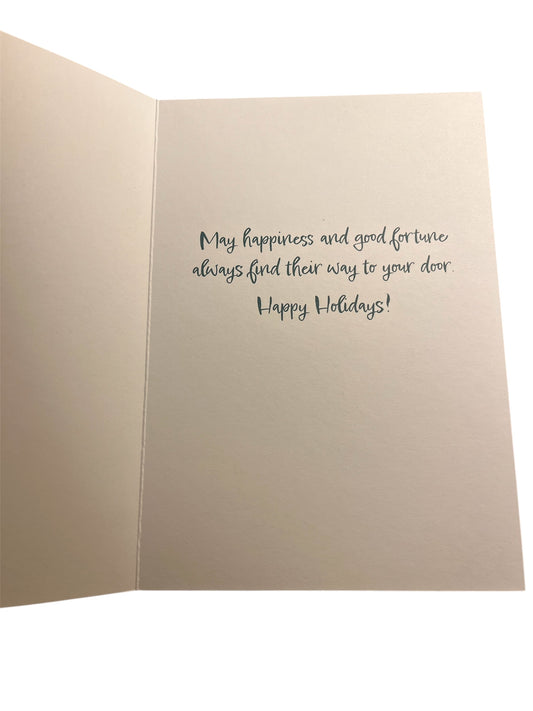 May happiness and good fortune
always find their way to your door.
Happy Holidays!